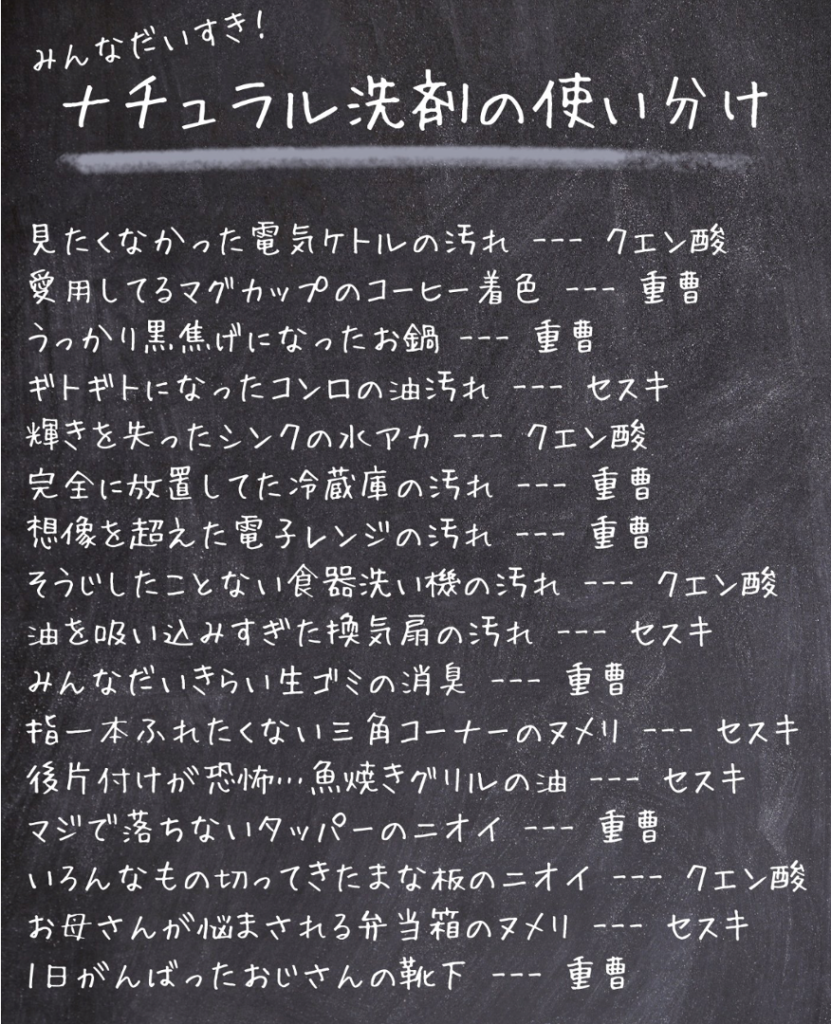 みんなだいすき!
ナチュラル洗剤の使い分け
見たくなかった電気ケトルの汚れ --- クエン酸
愛用してるマグカップのコーヒー着色 --- 重曹
うっかり黒焦げになったお鍋 --- 重曹
ギトギトになったコンロの油汚れ --- セスキ
輝きを失ったシンクの水アカ --- クエン酸
完全に放置してた冷蔵庫の汚れ --- 重曹
想像を超えた電子レンジの汚れ --- 重曹
そうじしたことない食器洗い機の汚れ --- クエン酸
油を吸い込みすぎた換気扇の汚れ --- セスキ
みんなだいきらい生ゴミの消臭 --- 重曹
指一本ふれたくない三角コーナーのヌメリ --- セスキ
後片付けが恐怖…魚焼きグリルの油 --- セスキ
マジで落ちないタッパーのニオイ --- 重曹
いろんなもの切ってきたまな板のニオイ --- クエン酸
お母さんが悩まされる弁当箱のヌメリ --- セスキ
1日がんばったおじさんの靴下 --- 重曹